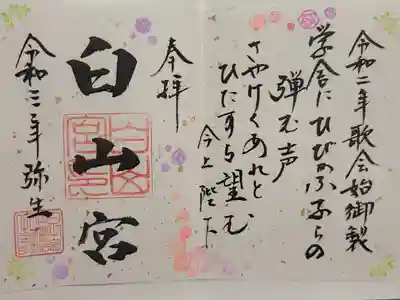 令和二年歌会始御製
学舎にひびかふ子らの
弾む声
さやけくあれと
ひたすら望む
今上陛下
奉拝
白山宮
令和三年弥生